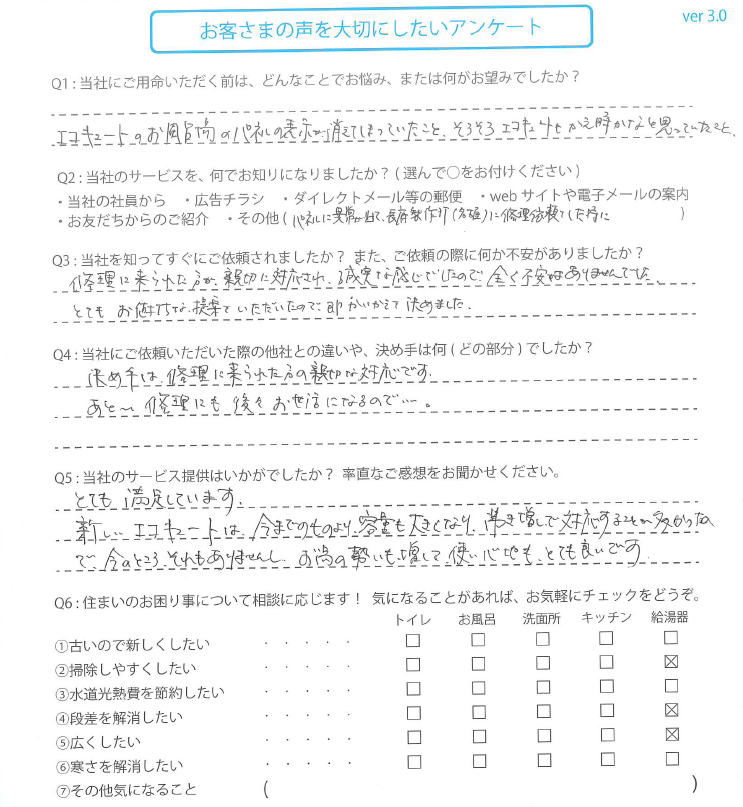 お客さまの声を大切にしたいアンケート
ver 3.0
Q1 : 当社にご用命いただく前は、どんなことでお悩み、または何がお望みでしたか？
エコキュートのお風呂場のパネルの表示が消えてしまっていたこと、そろそろエコキュートもかえ時かなと思っていたこと、
Q2 : 当社のサービスを、何でお知りになりましたか？ ( 選んで○をお付けください )
・当社の社員から ・広告チラシ ・ダイレクトメール等の郵便 ・web サイトや電子メールの案内
・お友だちからのご紹介 ・その他 ( パネルに異常が出て、長府製作所 に修理依頼した時に )
Q3 : 当社を知ってすぐにご依頼されましたか？ また、ご依頼の際に何か不安がありましたか？
修理に来られた方が、親切に対応され、誠実な感じでしたので全く不安はありませんでした、
とてもお値打ちな提案していただいたので、即かいかえて決めました.
Q4 : 当社にご依頼いただいた際の他社との違いや、決め手は何 ( どの部分 ) でしたか？
決め手は、修理に来られた方の親切な対応です.
あと〜 修理にも後々お世話になるので…。
Q5 : 当社のサービス提供はいかがでしたか？ 率直なご感想をお聞かせください。
とても満足しています.
新しいエコキュートは、今までのものより、容量も大きくなり、沸き増しで対応することが多かったの
で、今のところ、それもありませんし、お湯の勢いも増して、使い心地も、とても良いです.
Q6 : 住まいのお困り事について相談に応じます！ 気になることがあれば、お気軽にチェックをどうぞ。
トイレ お風呂 洗面所 キッチン 給湯器
①古いので新しくしたい ・・・・・ □ □ □ □ □
②掃除しやすくしたい ・・・・・ □ □ □ □ ☒
③水道光熱費を節約したい ・・・・・ □ □ □ □ □
④段差を解消したい ・・・・・ □ □ □ □ ☒
⑤広くしたい ・・・・・ □ □ □ □ ☒
⑥寒さを解消したい ・・・・・ □ □ □ □ □
⑦その他気になること ( )